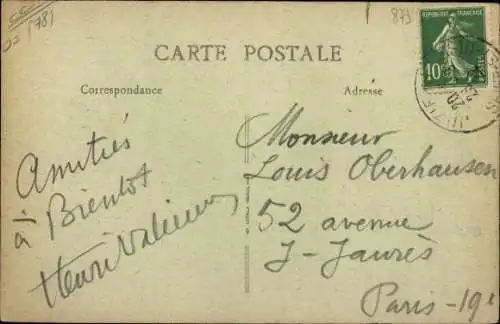 (78)
873
CARTE POSTALE
Correspondance
Adresse
REPUBLIQUE FRANÇAISE
10c
POSTES
Amitiés
à Bientôt
Henri
Monsieur
Louis Oberhausen
52 avenue
J-Jaurès
Paris-19e